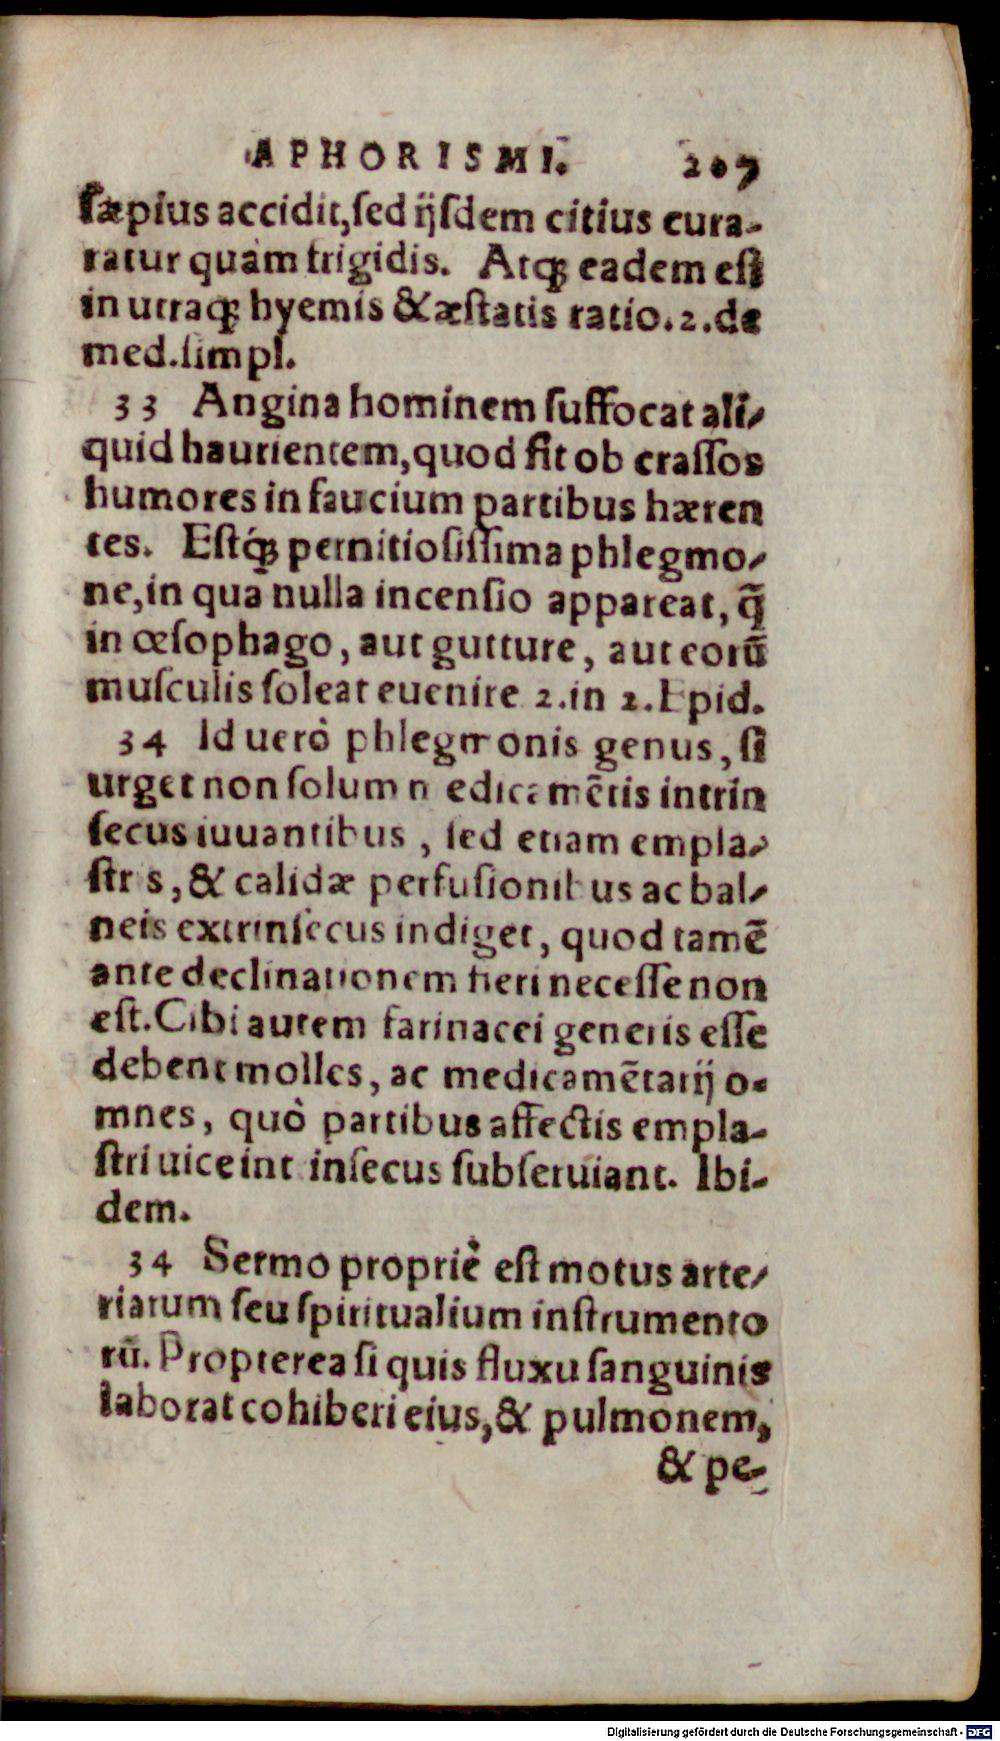 APHORISMI. 207
sæpius accidit, sed ijsdem citius cura-
ratur quàm frigidis. Atq́; eadem est
in utraq; hyemis & æstatis ratio. 2. de
med. simpl.
33 Angina hominem suffocat ali-
quid haurientem, quod fit ob crassos
humores in faucium partibus hæren
tes. Estq́; pernitiosissima phlegmo-
ne, in qua nulla incensio appareat, q̃
in œsophago, aut gutture, aut eorũ
musculis soleat euenire 2. in 2. Epid.
34 Id uerò phlegmonis genus, si
urget non solum medicamẽtis intrin
secus iuuantibus, sed etiam empla-
stris, & calidæ perfusionibus ac bal-
neis extrinsecus indiget, quod tamẽ
ante declinationem fieri necesse non
est. Cibi autem farinacei generis esse
debent molles, ac medicamẽtarij o-
mnes, quò partibus affectis empla-
stri uice int insecus subseruiant. Ibi-
dem.
34 Sermo propriè est motus arte-
riarum seu spiritualium instrumento
rũ. Propterea si quis fluxu sanguinis
laborat cohiberi eius, & pulmonem,
& pe-
Digitalisierung gefördert durch die Deutsche Forschungsgemeinschaft - DFG